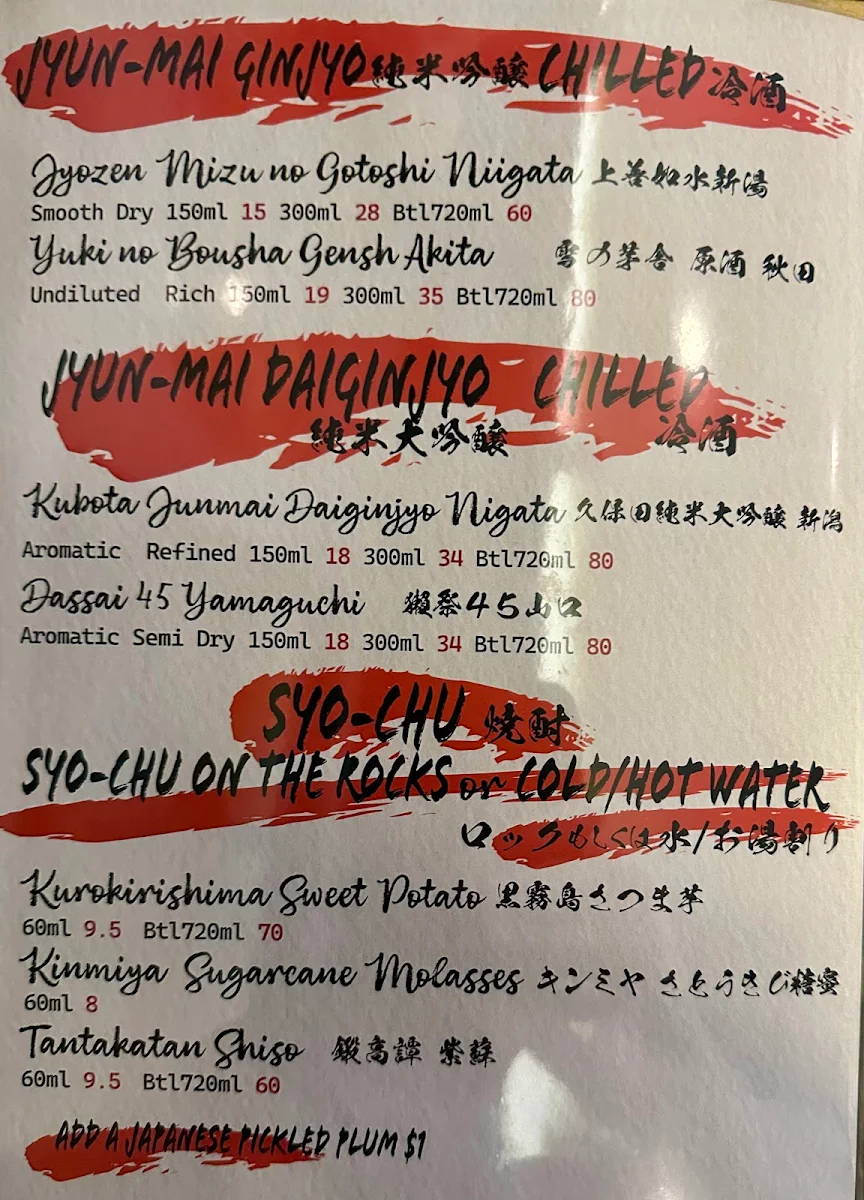 JYUN-MAI GINJYO 純米吟醸 CHILLED 冷酒
Jyozen Mizu no Gotoshi Niigata 上善如水新潟
Smooth Dry 150ml 15 300ml 28 Btl720ml 60
Yuki no Bousha Gensh Akita 雪の茅舎 原酒 秋田
Undiluted Rich 150ml 19 300ml 35 Btl720ml 80
JYUN-MAI DAIGINJYO CHILLED
純米大吟醸 冷酒
Kubota Junmai Daiginjyo Nigata 久保田純米大吟醸 新潟
Aromatic Refined 150ml 18 300ml 34 Btl720ml 80
Dassai 45 Yamaguchi 獺祭45山口
Aromatic Semi Dry 150ml 18 300ml 34 Btl720ml 80
SYO-CHU 焼酎
SYO-CHU ON THE ROCKS or COLD/HOT WATER
ロックもしくは水/お湯割り
Kurokirishima Sweet Potato 黒霧島さつま芋
60ml 9.5 Btl720ml 70
Kinmiya Sugarcane Molasses キンミヤ さとうきび糖蜜
60ml 8
Tantakatan Shiso 鍛高譚 紫蘇
60ml 9.5 Btl720ml 60
ADD A JAPANESE PICKLED PLUM $1